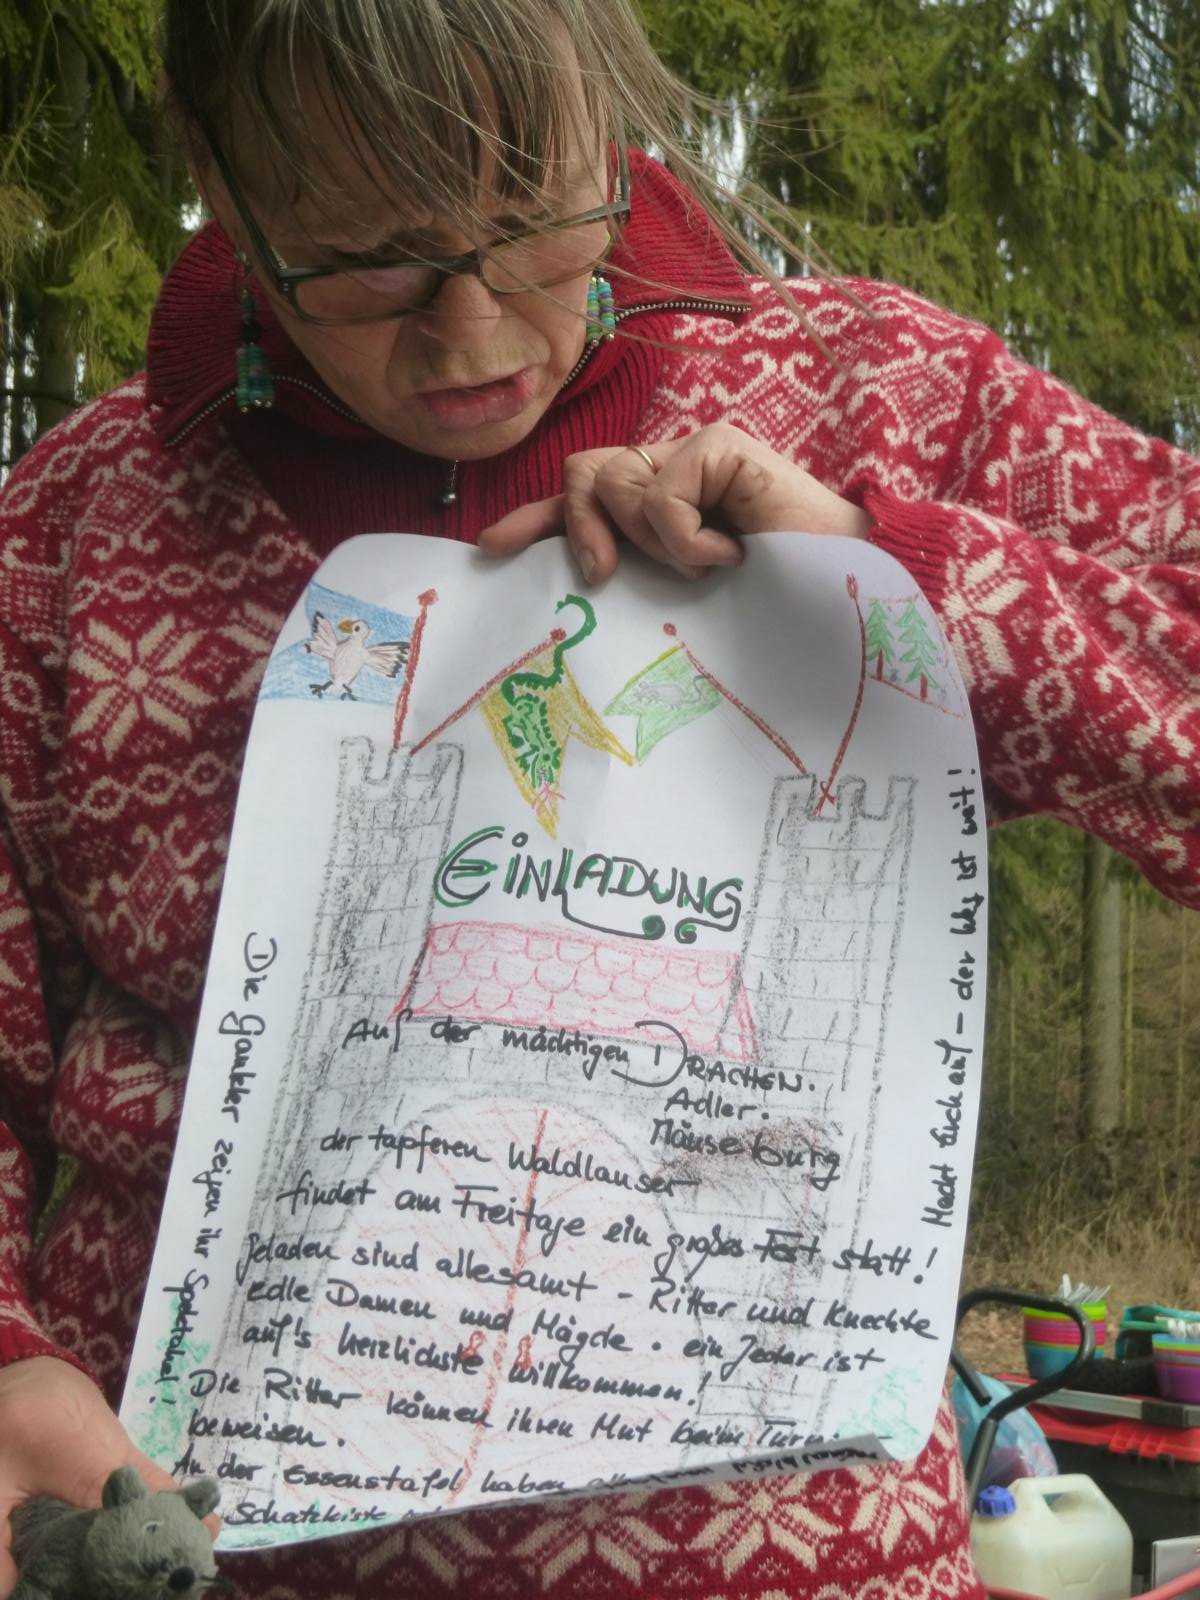 EINLADUNG
Auf der mächtigen DRACHEN.
Adler.
Mäuseburg
der tapferen Waldlauser
findet am Freitage ein großes Fest statt!
geladen sind allesamt - Ritter und Knechte
edle Damen und Mägde. ein Jeder ist
auf's herzlichste willkommen!
Die Ritter können ihren Mut beim
beweisen.
An der Essenstafel haben
Schatzkiste
Die Gaukler zeigen ihr Spektakel!
Macht Euch auf - der Weg ist weit!